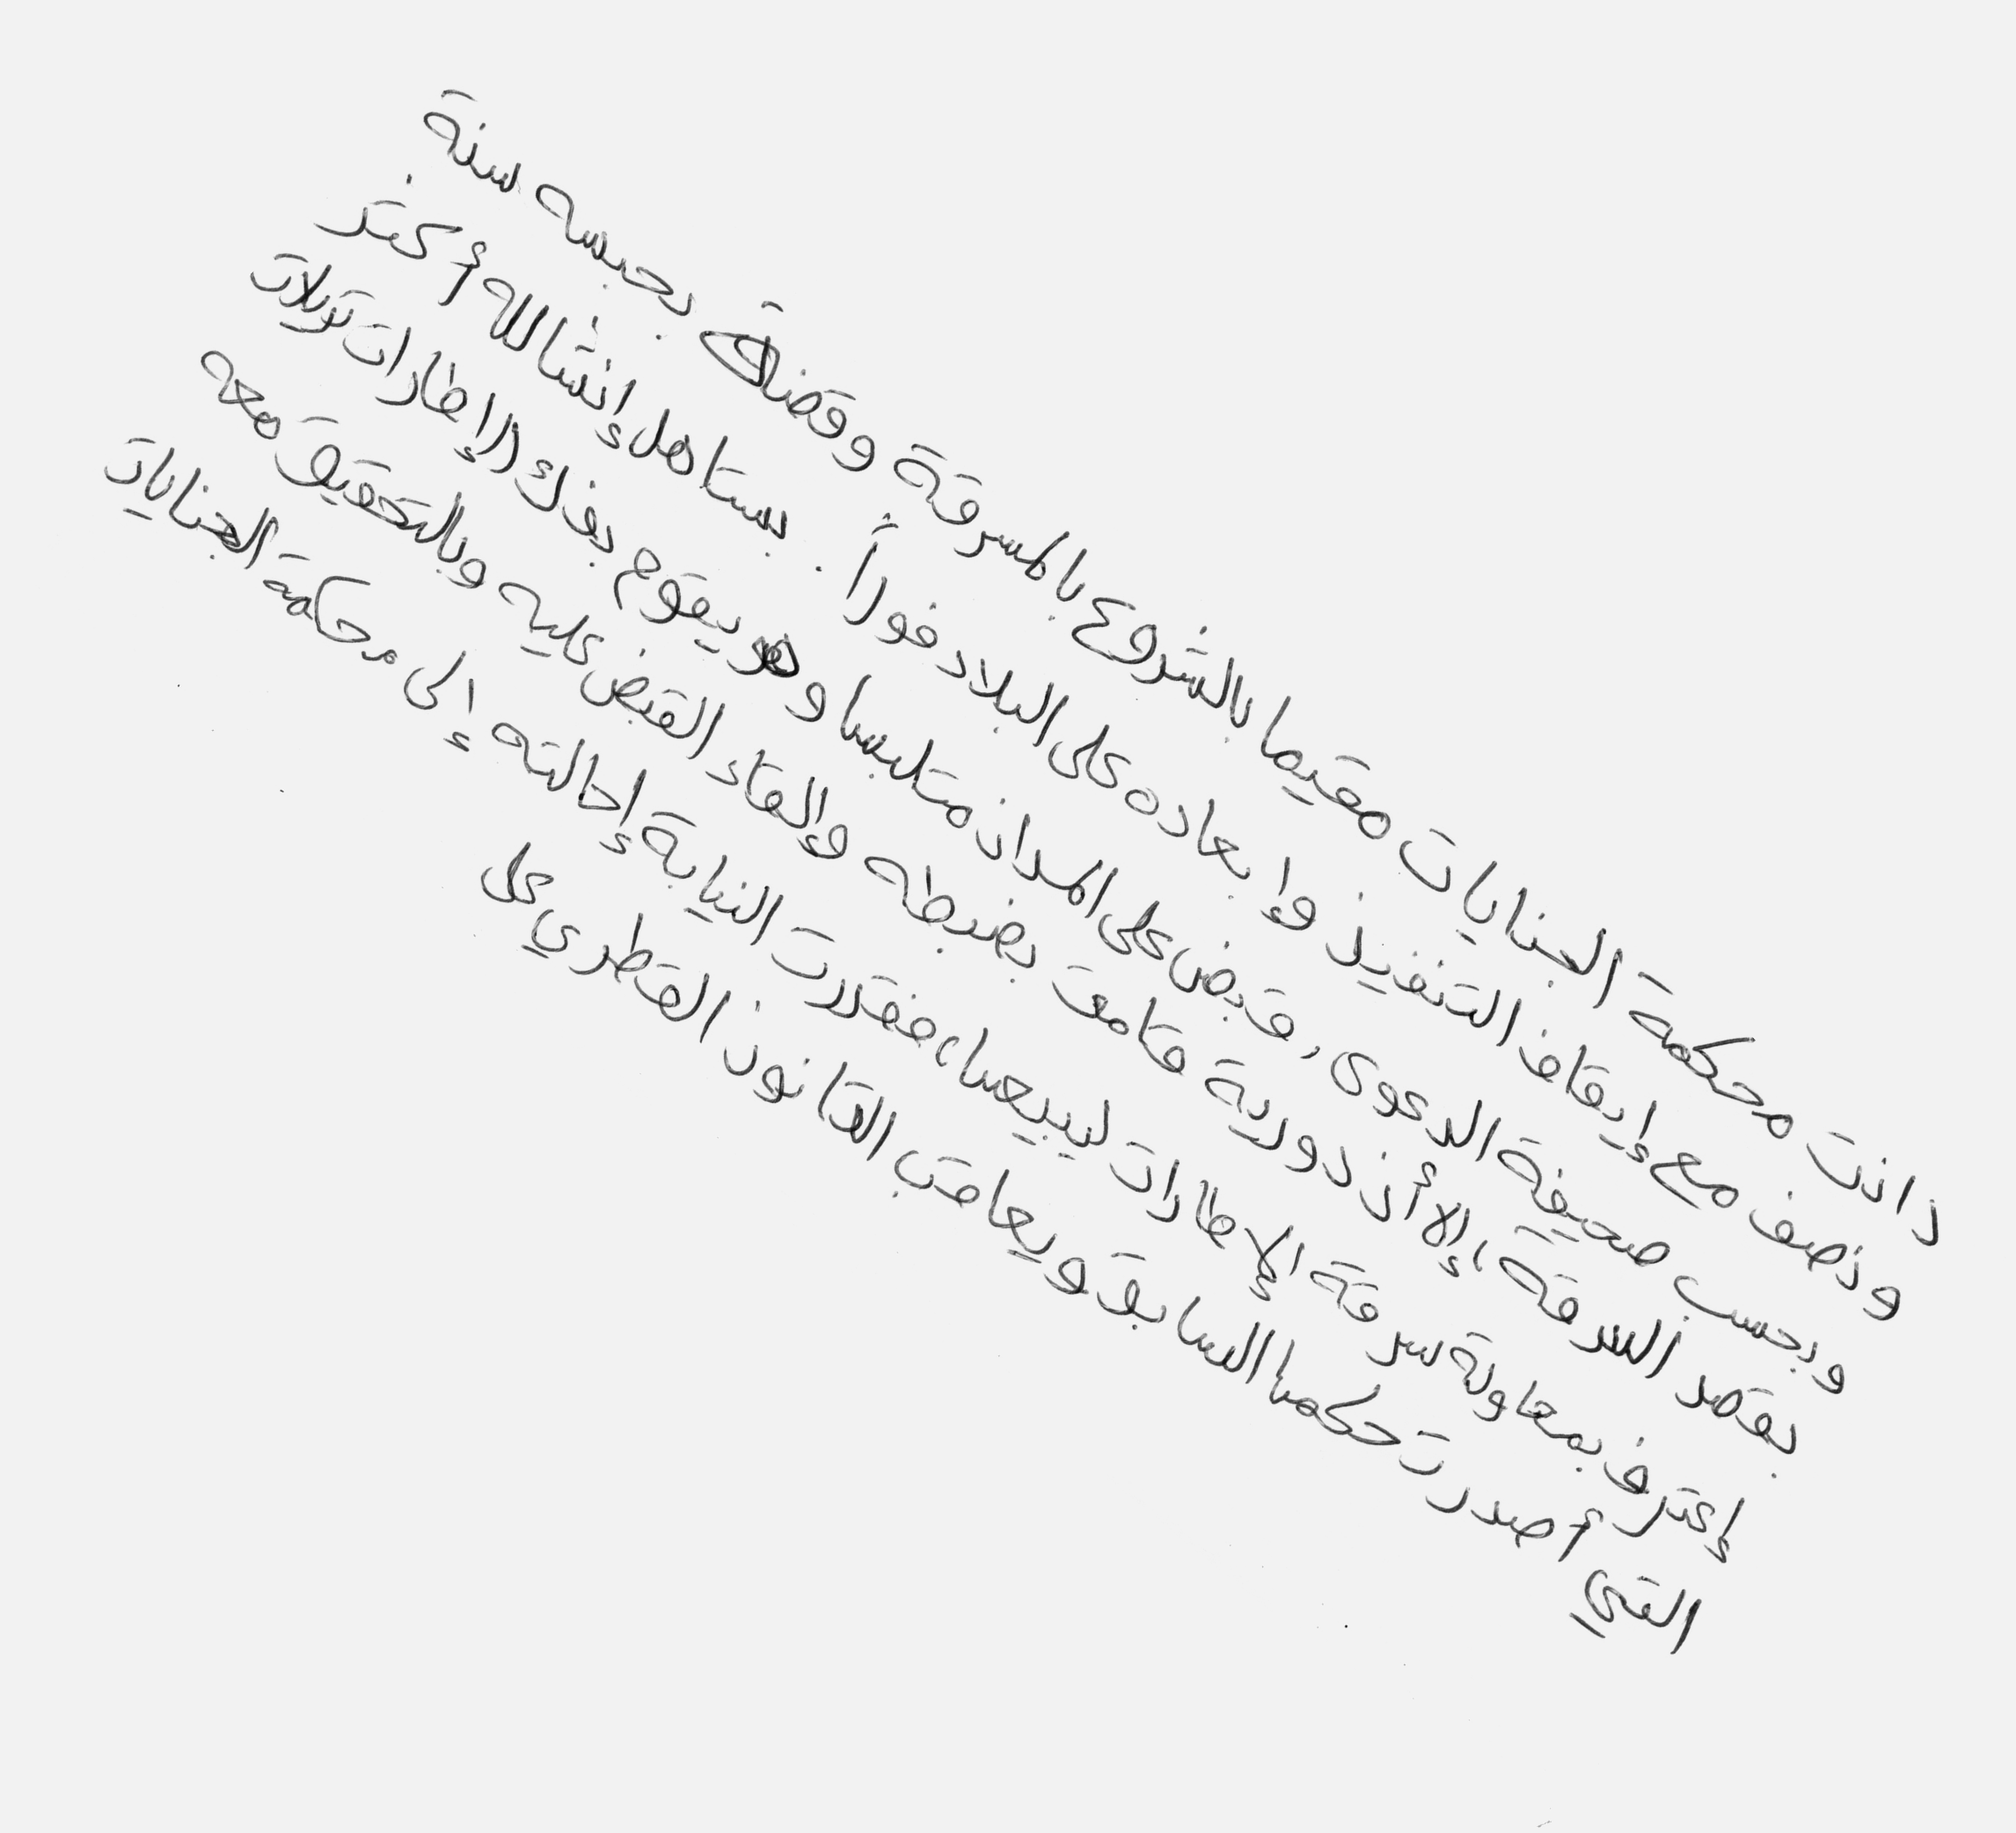 دانت محكمة الجنايات مقيما بالشروع بالسرقة وقضت بحبسه سنة
ونصف مع إيقاف التنفيذ وإبعاده على البلاد فوراً . يستاهل إنشالله أكثر
وبحسب صحيفة الدعوى، قبض على المدان متلبسا وهو يقوم بفك الإطارات تريلات
بقصد السرقة، إلا أن دورية قامت بضبطه وإلقاء القبض عليه وبالتحقيق معه
إعترف بمحاولة سرقة الإطارات لبيعها، فقررت النيابة إحالته إلى محكمة الجنايات
التي أصدرت حكمها السابق ويعاقب القانون القطري كل